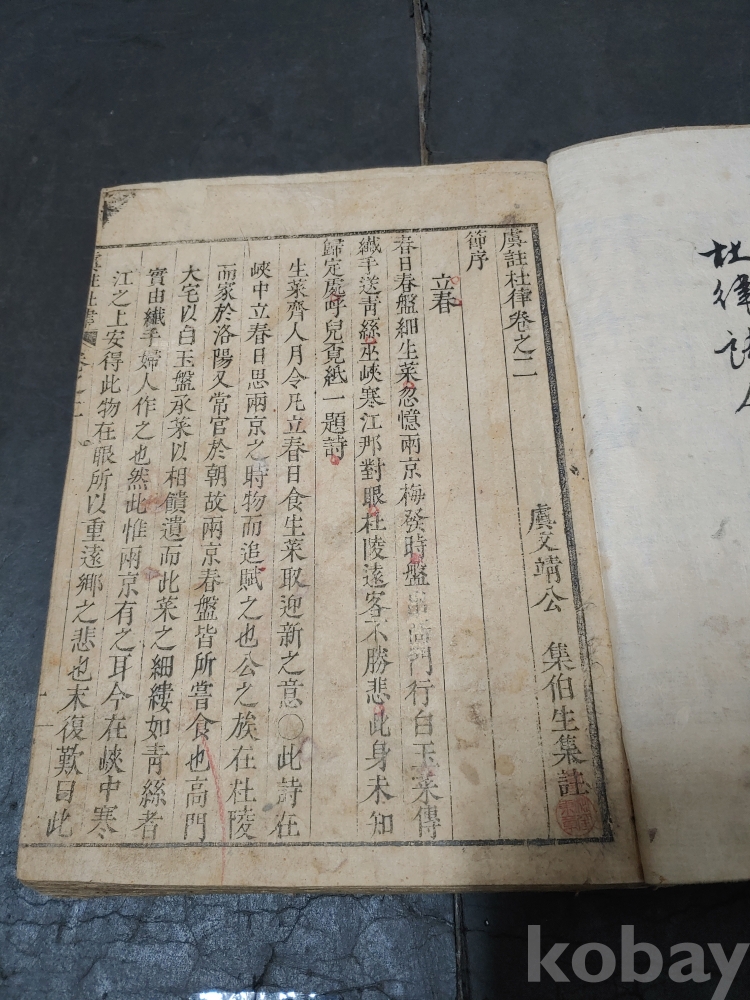 杜律
虞註杜律卷之二
虞文靖公 集伯生集註
節序
立春
春日春盤細生菜忽憶兩京梅發時盤出高門行白玉菜傳
纖手送青絲巫峽寒江那對眼杜陵遠客不勝悲此身未知
歸定處呼兒覓紙一題詩
生菜齊人月令凡立春日食生菜取迎新之意〇此詩在
峽中立春日思兩京之時物而追賦之也公之族在杜陵
而家於洛陽又常官於朝故兩京春盤皆所嘗食也高門
大宅以白玉盤承菜以相饋遺而此菜之細縷如青絲者
實由纖手婦人作之也然此惟兩京有之耳今在峽中寒
江之上安得此物在眼所以重遠鄉之悲也末復歎曰此
虞註杜律 卷之二
kobay